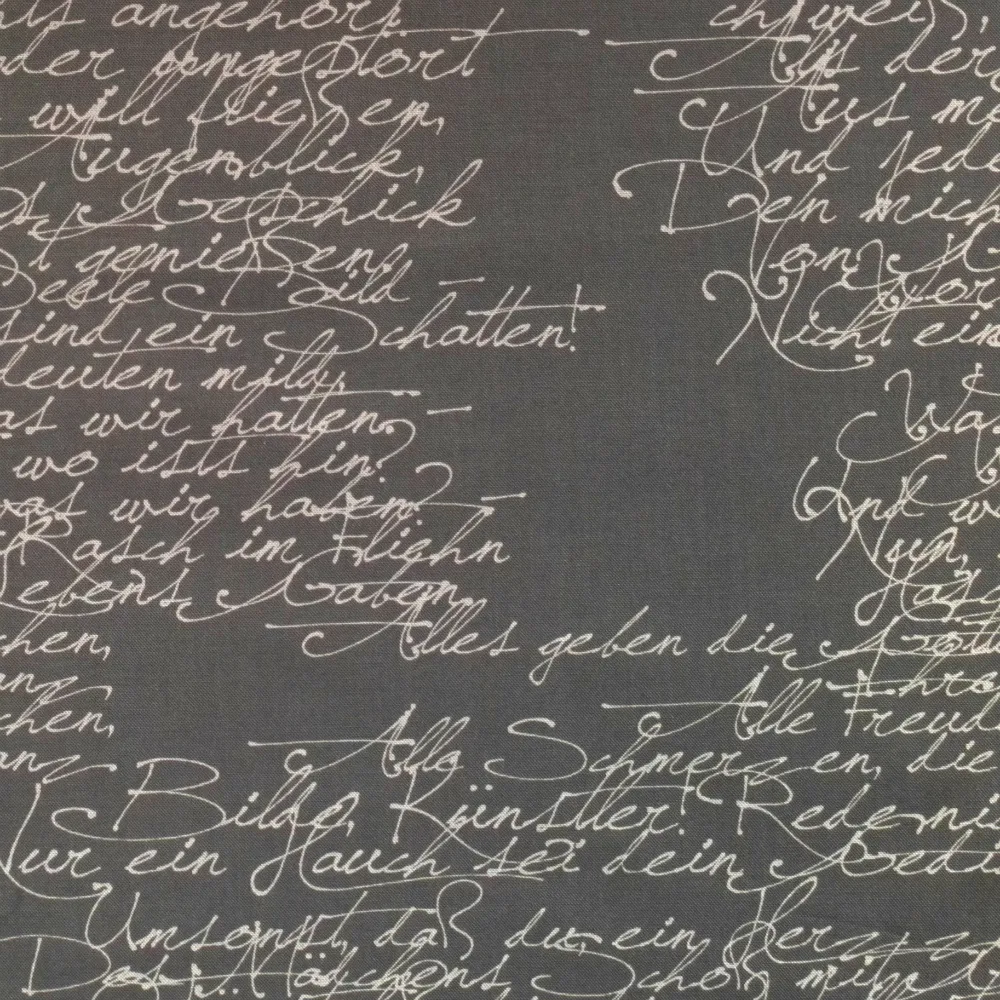 angehört
oder ungestört chweiß,
will fließen, Als der
Augenblick, Aus me
Geschick Und jede
genießen. Den mich
Beste Bild Von
sind ein Schatten! Nicht ein
leuten mild,
as wir hatten, Was
wo ists hin?
was wir haben? Und w
Rasch im Fliehn Nun,
Lebens Gaben. Das
chen, Alles geben die
Ihre
chen, Alle Freud
Alle Schmerzen, die
Bilde, Künstler! Rede ni
Nur ein Hauch sei dein Gedi
Umsonst, daß du, ein Herz
Des Mädchens Schoß mit